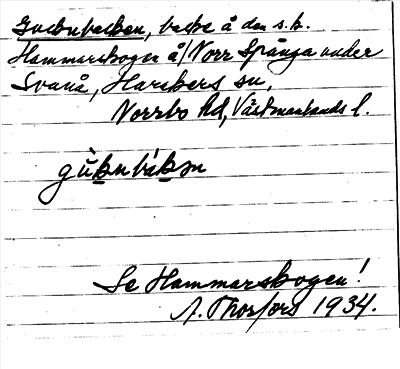 Guckubacken, backe å den s.k.
Hammarskogen å/Norr Spånga under
Svanå, Harakers sn,
Norrbo hd, Västmanlands l.
Se Hammarskogen!
A. Thorfors 1934.